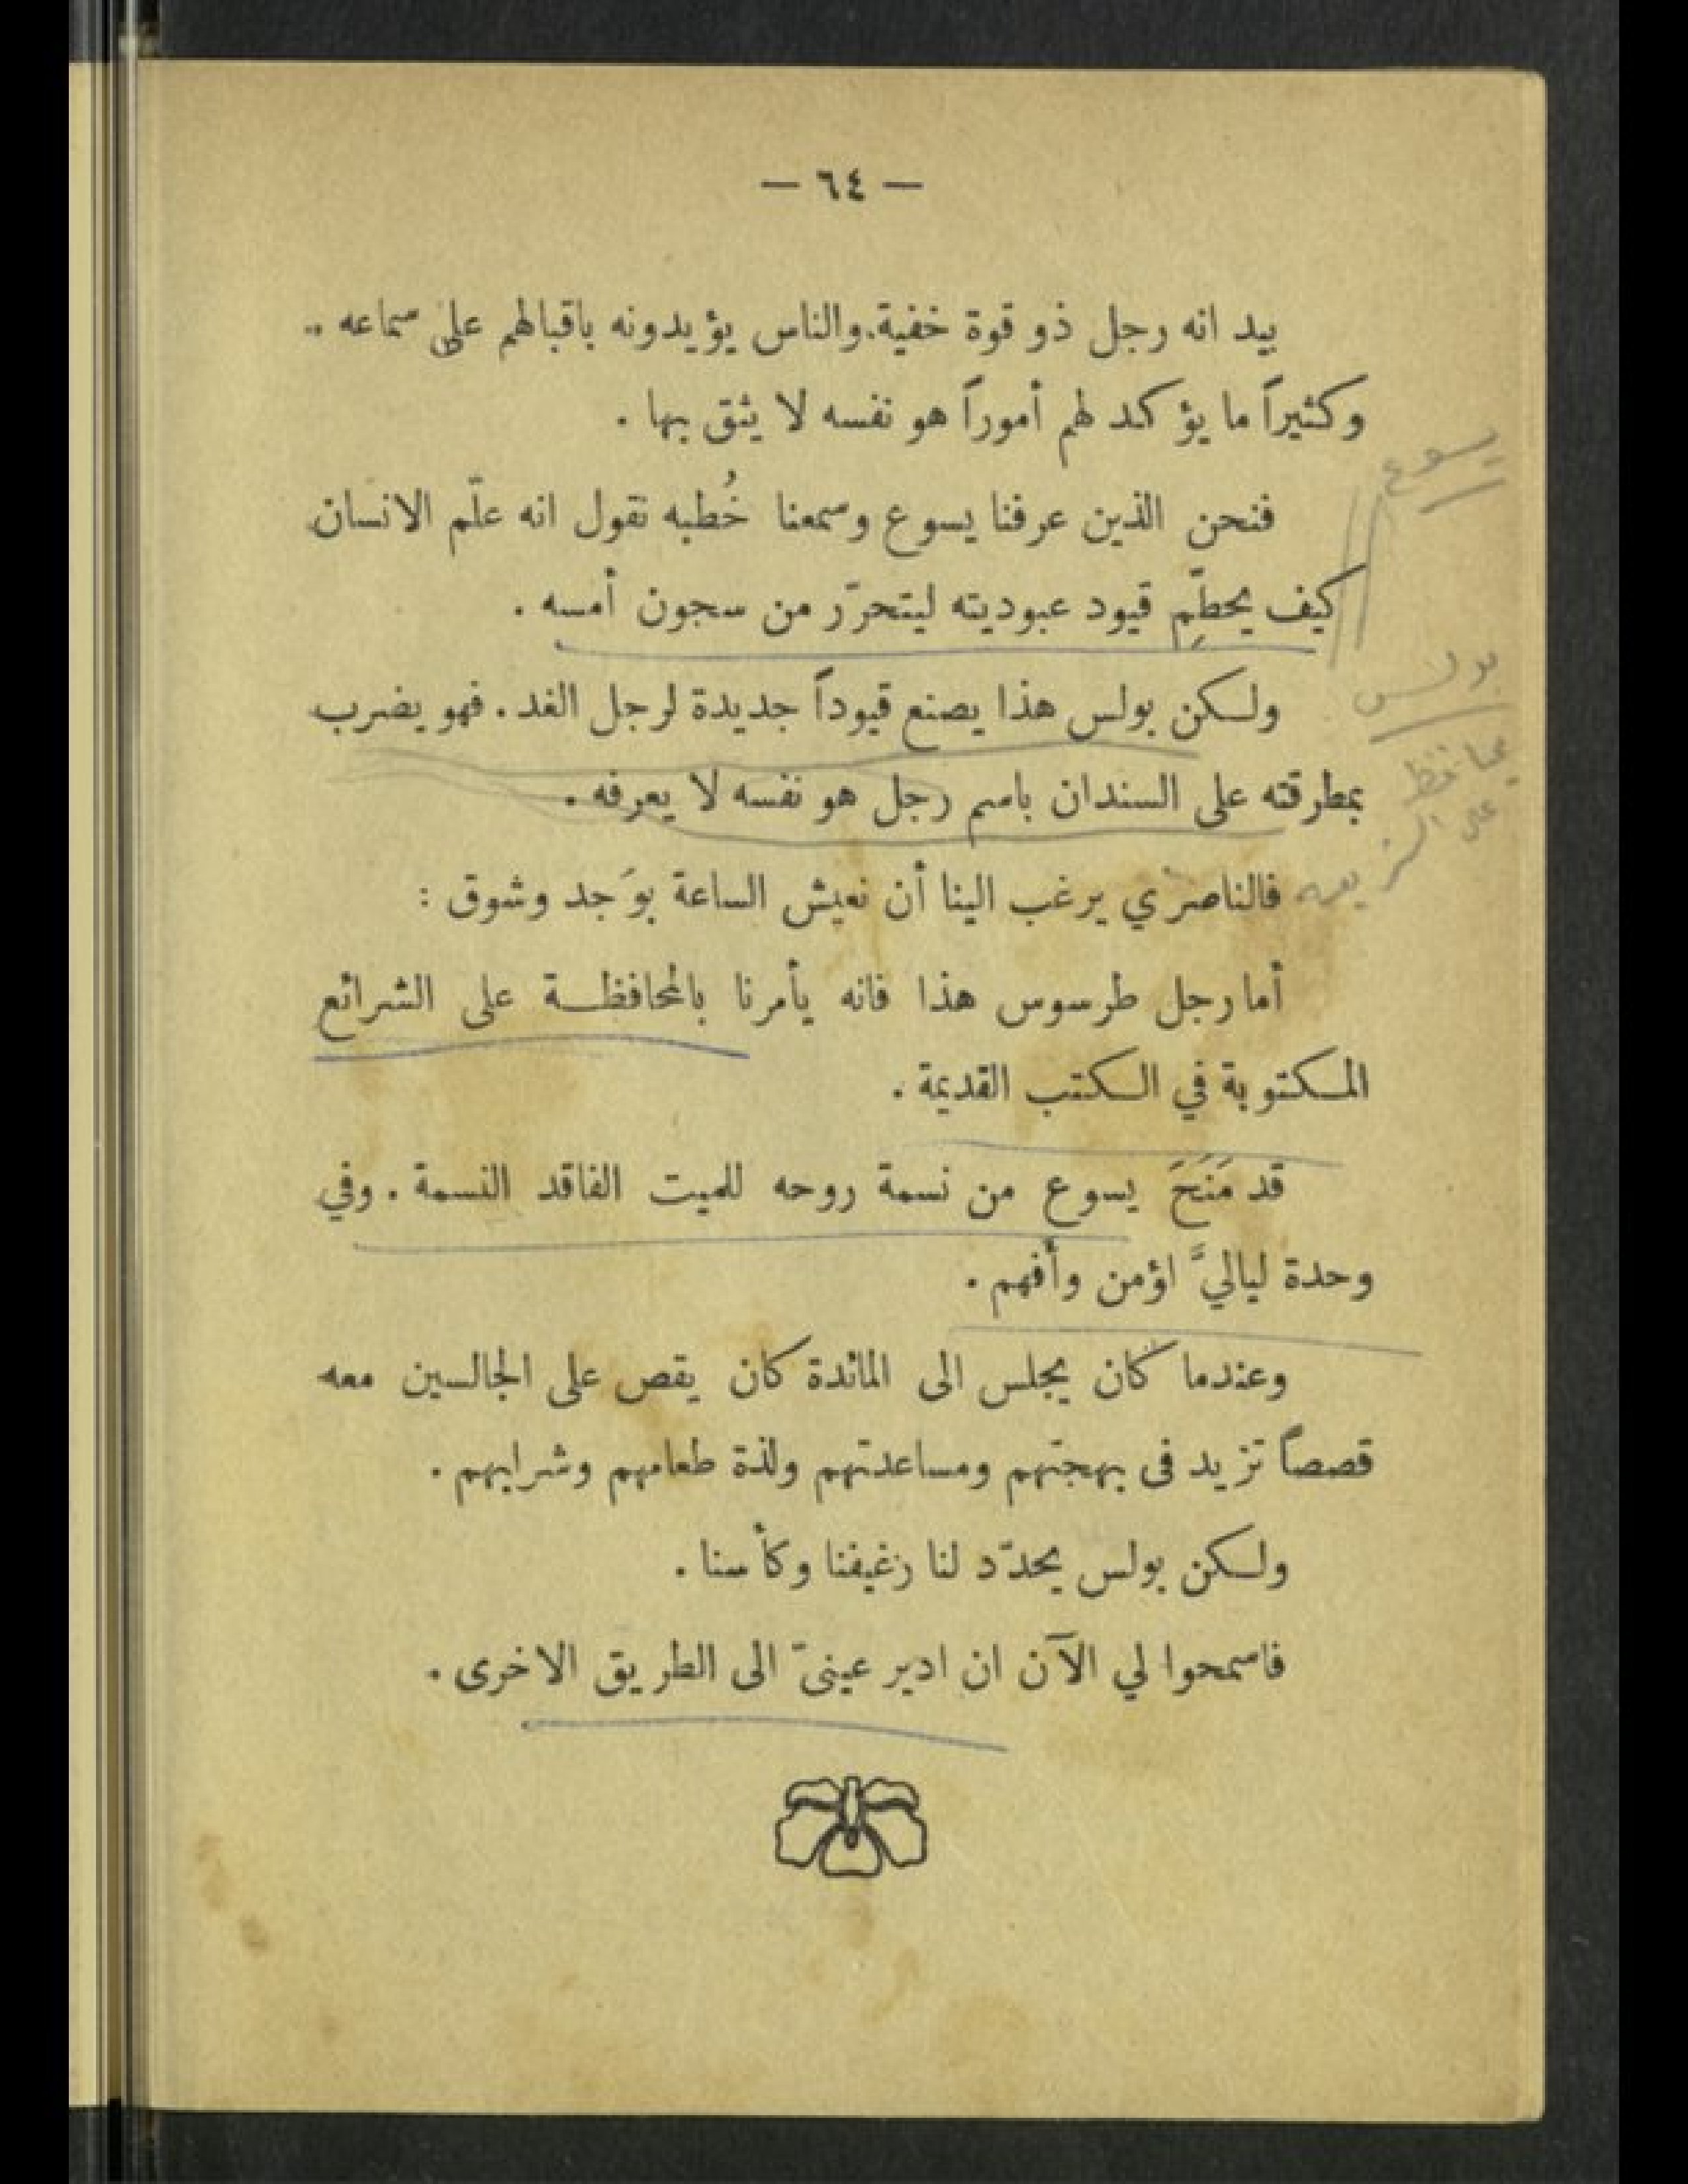 — ٦٤ —
بيد انه رجل ذو قوة خفية. والناس يؤيدونه باقبالهم على سماعه ..
وكثيراً ما يؤكد لهم أموراً هو نفسه لا يثق بها .
يسوع
فنحن الذين عرفنا يسوع وسمعنا خُطبه نقول انه علّم الانسان
كيف يحطِّم قيود عبوديته ليتحرّر من سجون أمسه .
بولس
ولكن بولس هذا يصنع قيوداً جديدة لرجل الغد . فهو يضرب
يحافظ
بمطرقته على السندان باسم رجل هو نفسه لا يعرفه .
على الشريعه
فالناصري يرغب الينا أن نعيش الساعة بوَجد وشوق :
أما رجل طرسوس هذا فانه يأمرنا بالمحافظة على الشرائع
المكتوبة في الكتب القديمة .
قد مَنَحَ يسوع من نسمة روحه للميت الفاقد النسمة . وفي
وحدة لياليَّ اؤمن وأفهم .
وعندما كان يجلس الى المائدة كان يقص على الجالسين معه
قصصاً تزيد فى بهجتهم ومساعدتهم ولذة طعامهم وشرابهم .
ولكن بولس يحدّد لنا رغيفنا وكأسنا .
فاسمحوا لي الآن ان ادير عينىّ الى الطريق الاخرى .